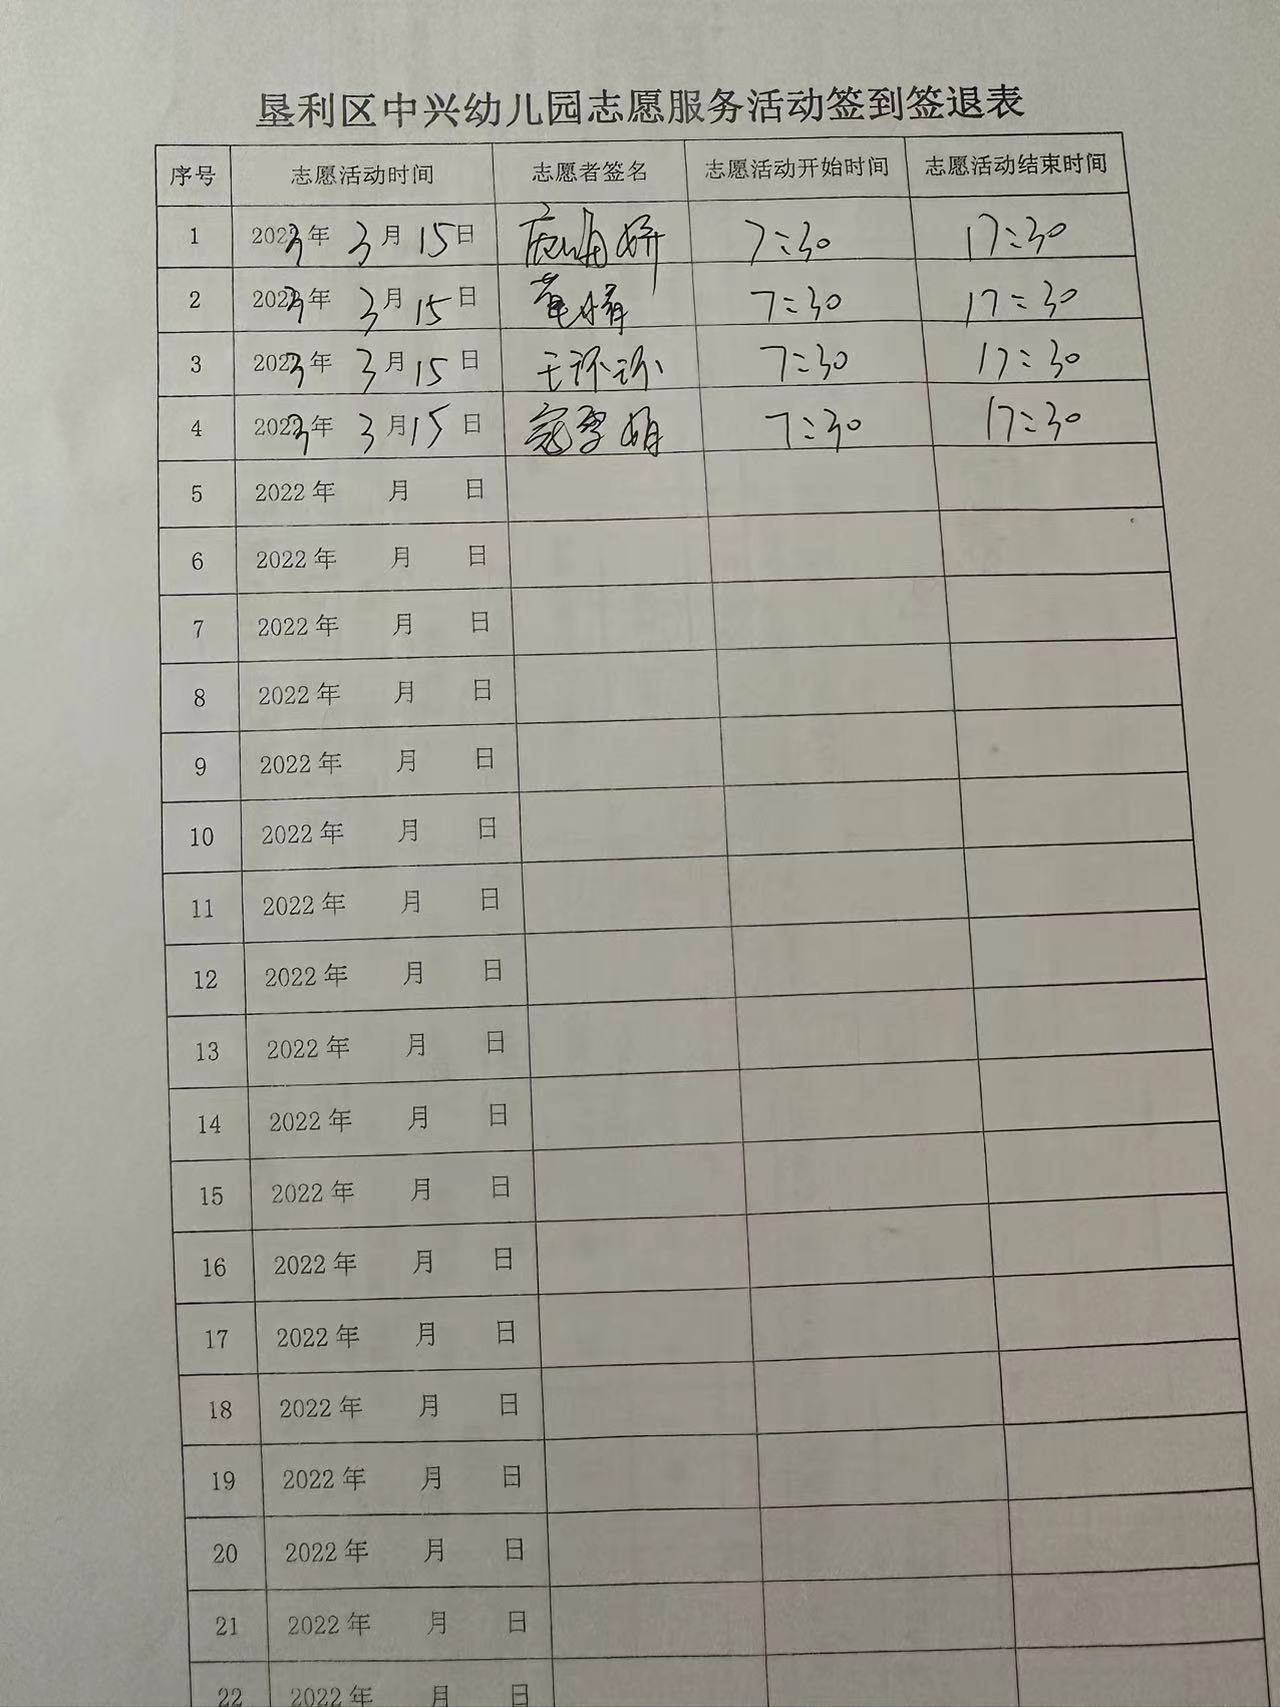 垦利区中兴幼儿园志愿服务活动签到签退表
序号 志愿活动时间 志愿者签名 志愿活动开始时间 志愿活动结束时间
1 2023年 3月 15日 7:30 17:30
2 2023年 3月 15日 7:30 17:30
3 2023年 3月 15日 王环环 7:30 17:30
4 2023年 3月 15日 7:30 17:30
5 2022年 月 日
6 2022年 月 日
7 2022年 月 日
8 2022年 月 日
9 2022年 月 日
10 2022年 月 日
11 2022年 月 日
12 2022年 月 日
13 2022年 月 日
14 2022年 月 日
15 2022年 月 日
16 2022年 月 日
17 2022年 月 日
18 2022年 月 日
19 2022年 月 日
20 2022年 月 日
21 2022年 月 日
22 2022年 月 日